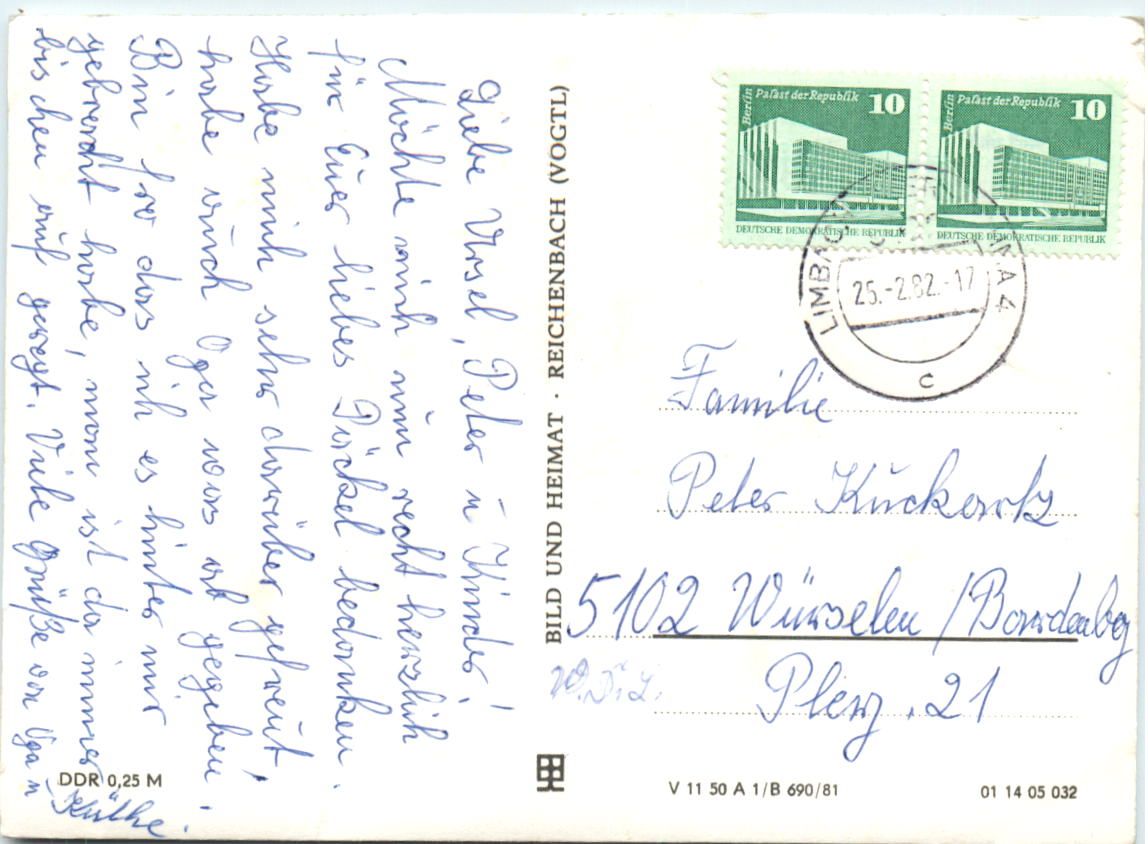 Liebe Ursel, Peter u Kinder!
Möchte mich nun recht herzlich
für Euer liebes Päckel bedanken.
Habe mich sehr darüber gefreut,
habe auch Oga was ab gegeben.
Bin froh das ich es hinter mir
gebracht habe, man ist da immer
bischen auf geregt. Viele Grüße von Oga u
Käthe.
DDR 0,25 M
BILD UND HEIMAT · REICHENBACH (VOGTL)
Berlin
Palast der Republik 10
DEUTSCHE DEMOKRATISCHE REPUBLIK
Berlin
Palast der Republik 10
DEUTSCHE DEMOKRATISCHE REPUBLIK
LIMBACH A 4
25.-2.82.-17
c
Familie
Peter Kuckertz
5102 Würselen / Bardenberg
W. D. L.
Pley. 21
V 11 50 A 1/B 690/81
01 14 05 032